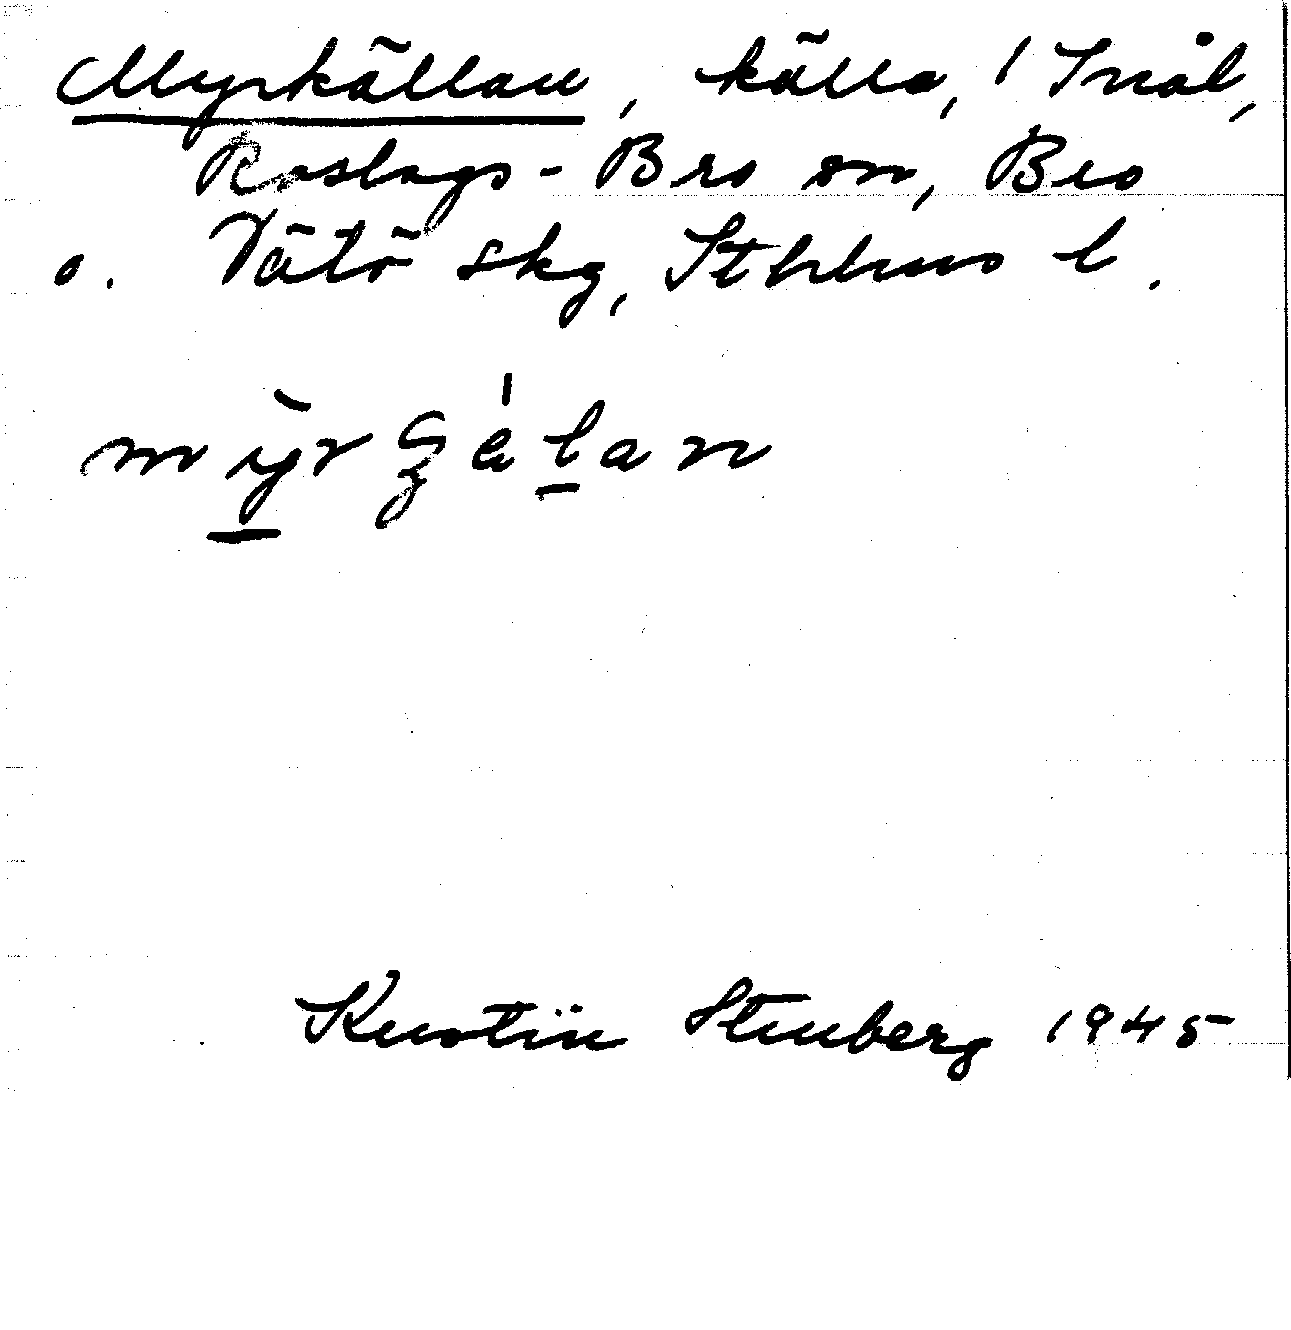 Myrkällan, källa, 1 Tnål,
Roslags-Bro sn, Bro
o. Vätö skg, Sthlms l.
Kerstin Stenberg 1945